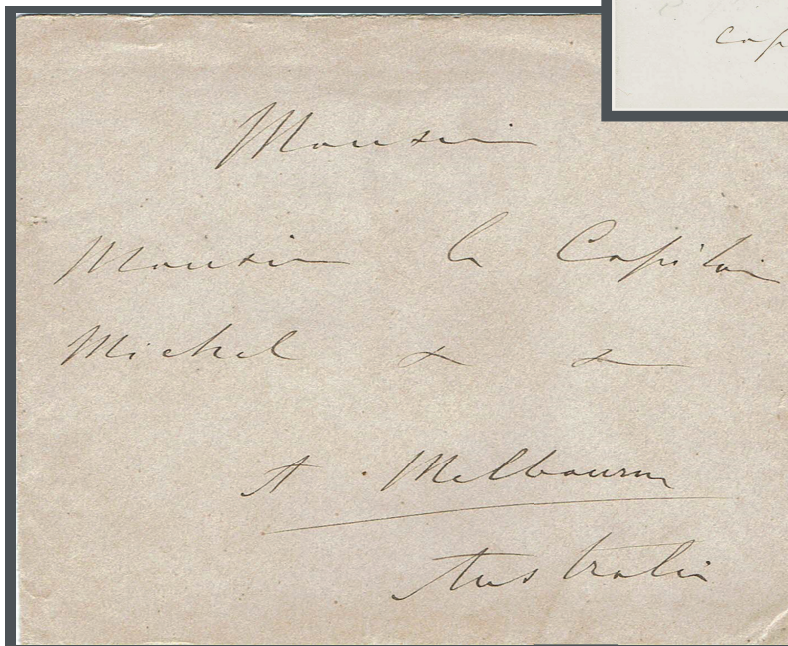 Monsieur
Monsieur le Capitaine
Michel x x
A Melbourne
Australie